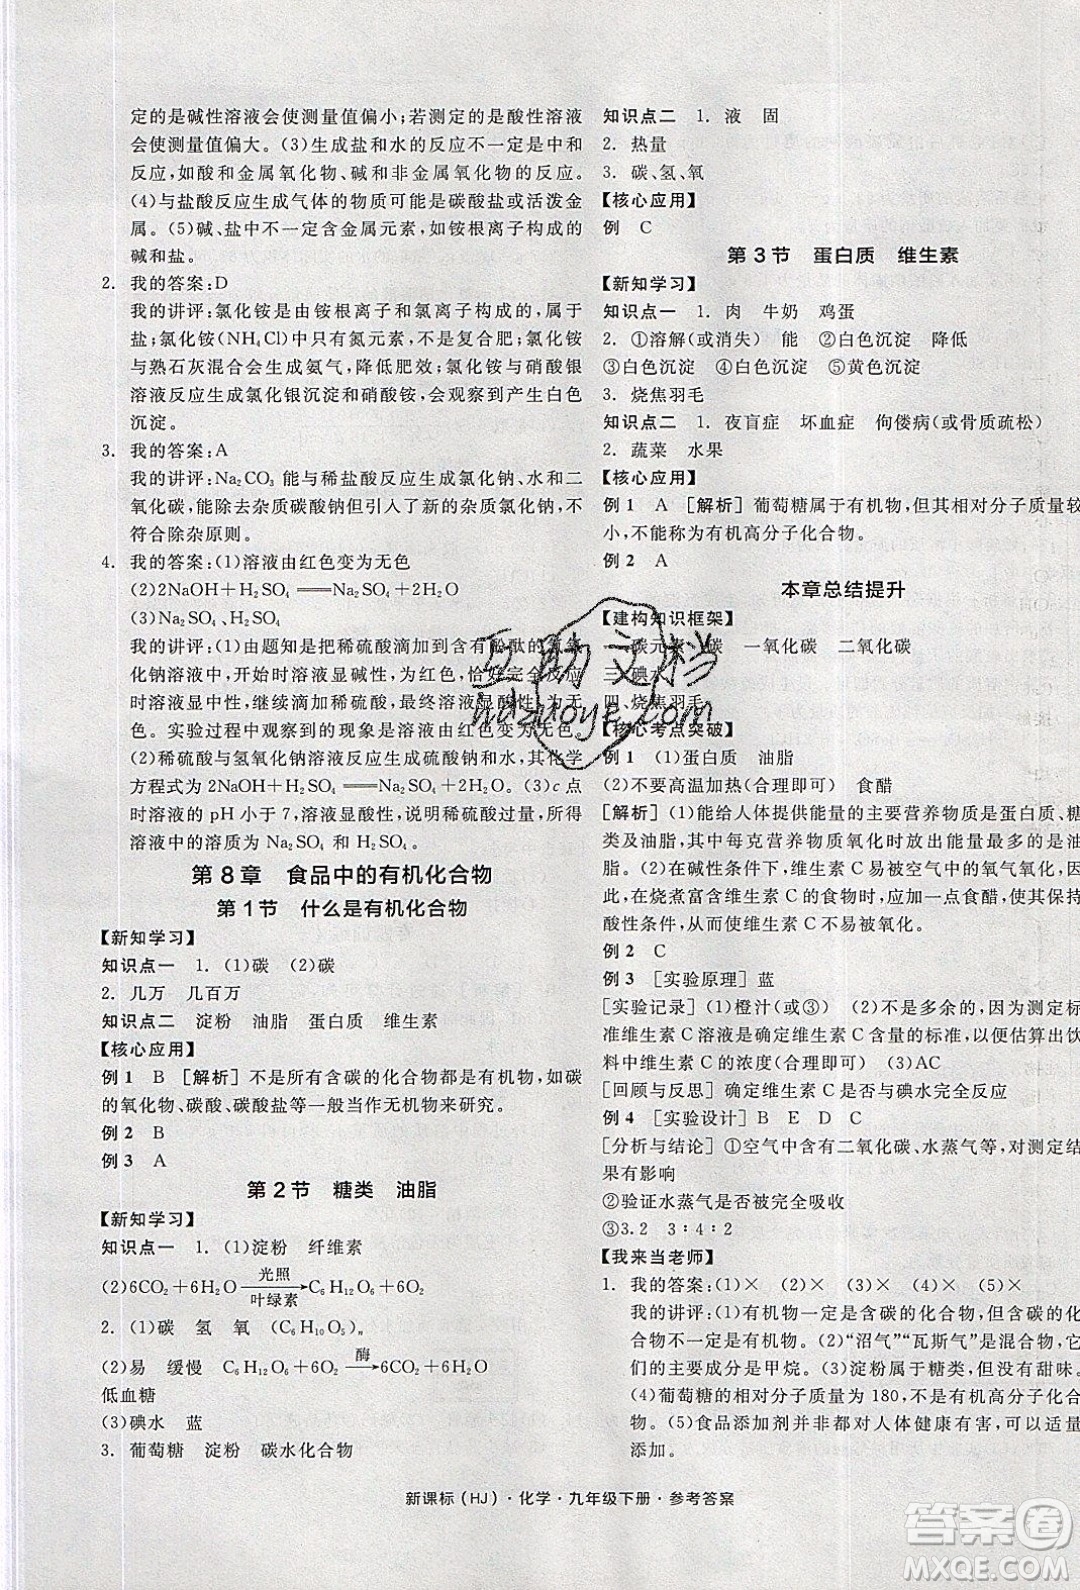 定的是碱性溶液会使测量值偏小;若测定的是酸性溶液
会使测量值偏大。(3)生成盐和水的反应不一定是中和
反应,如酸和金属氧化物、碱和非金属氧化物的反应。
(4)与盐酸反应生成气体的物质可能是碳酸盐或活泼金
属。(5)碱、盐中不一定含有金属元素,如铵根离子构成的
碱和盐。
2. 我的答案:D
我的讲评:氯化铵是由铵根离子和氯离子构成的,属于
盐;氯化铵(NH₄Cl)中只有氮元素,不是复合肥;氯化铵
与熟石灰混合会生成氨气,降低肥效;氯化铵与硝酸银
溶液反应生成氯化银沉淀和硝酸铵,会观察到产生白色
沉淀。
3. 我的答案:A
我的讲评:Na₂CO₃ 能与稀盐酸反应生成氯化钠、水和二
氧化碳,能除去杂质碳酸钠但引入了新的杂质氯化钠,不
符合除杂原则。
4. 我的答案:(1)溶液由红色变为无色
(2)2NaOH+H₂SO₄══Na₂SO₄+2H₂O
(3)Na₂SO₄、H₂SO₄
我的讲评:(1)由题知是把稀硫酸滴加到含有酚酞的氢氧
化钠溶液中,开始时溶液显碱性,呈红色,恰好完全反应
时溶液显中性,继续滴加稀硫酸,最终溶液显酸性,为无
色。实验过程中观察到的现象是溶液由红色变为无色。
(2)稀硫酸与氢氧化钠溶液反应生成硫酸钠和水,其化学
方程式为 2NaOH+H₂SO₄══Na₂SO₄+2H₂O。(3)c 点
时溶液的 pH 小于 7,溶液显酸性,说明稀硫酸过量,所得
溶液中的溶质是 Na₂SO₄ 和 H₂SO₄。
第 8 章 食品中的有机化合物
第 1 节 什么是有机化合物
【新知学习】
知识点一 1. (1)碳 (2)碳
2. 几万 几百万
知识点二 淀粉 油脂 蛋白质 维生素
【核心应用】
例 1 B [解析] 不是所有含碳的化合物都是有机物,如碳
的氧化物、碳酸、碳酸盐等一般当作无机物来研究。
例 2 B
例 3 A
第 2 节 糖类 油脂
【新知学习】
知识点一 1. (1)淀粉 纤维素
(2)6CO₂+6H₂O 光照→叶绿素 C₆H₁₂O₆+6O₂
2. (1)碳 氢 氧 (C₆H₁₀O₅)ₙ
(2)易 缓慢 C₆H₁₂O₆+6O₂ 酶→ 6CO₂+6H₂O
低血糖
(3)碘水 蓝
3. 葡萄糖 淀粉 碳水化合物
知识点二 1. 液 固
2. 热量
3. 碳、氢、氧
【核心应用】
例 C
第 3 节 蛋白质 维生素
【新知学习】
知识点一 1. 肉 牛奶 鸡蛋
2. ①溶解(或消失) 能 ②白色沉淀 降低
③白色沉淀 ④白色沉淀 ⑤黄色沉淀
3. 烧焦羽毛
知识点二 1. 夜盲症 坏血症 佝偻病(或骨质疏松)
2. 蔬菜 水果
【核心应用】
例 1 A [解析] 葡萄糖属于有机物,但其相对分子质量较
小,不能称为有机高分子化合物。
例 2 A
本章总结提升
【建构知识框架】
一、碳元素 碳 一氧化碳 二氧化碳
三、碘水
四、烧焦羽毛
【核心考点突破】
例 1 (1)蛋白质 油脂
(2)不要高温加热(合理即可) 食醋
[解析] (1)能给人体提供能量的主要营养物质是蛋白质、糖
类及油脂,其中每克营养物质氧化时放出能量最多的是油
脂。(2)在碱性条件下,维生素 C 易被空气中的氧气氧化,因
此,在烧煮富含维生素 C 的食物时,应加一点食醋,使其具有
酸性条件,从而使维生素 C 不易被氧化。
例 2 C
例 3 [实验原理] 蓝
[实验记录] (1)橙汁(或③) (2)不是多余的,因为测定标
准维生素 C 溶液是确定维生素 C 含量的标准,以便估算出饮
料中维生素 C 的浓度(合理即可) (3)AC
[回顾与反思] 确定维生素 C 是否与碘水完全反应
例 4 [实验设计] B E D C
[分析与结论] ①空气中含有二氧化碳、水蒸气等,对测定结
果有影响
②验证水蒸气是否被完全吸收
③3.2 3∶4∶2
【我来当老师】
1. 我的答案:(1)× (2)× (3)× (4)× (5)×
我的讲评:(1)有机物一定是含碳的化合物,但含碳的化
合物不一定是有机物。(2)“沼气”“瓦斯气”是混合物,它
们的主要成分是甲烷。(3)淀粉属于糖类,但没有甜味。
(4)葡萄糖的相对分子质量为 180,不是有机高分子化合
物。(5)食品添加剂并非都对人体健康有害,可以适量
添加。
新课标(HJ)·化学·九年级下册·参考答案
互助文档
hdzuoye.com
答案圈
MXQE.COM